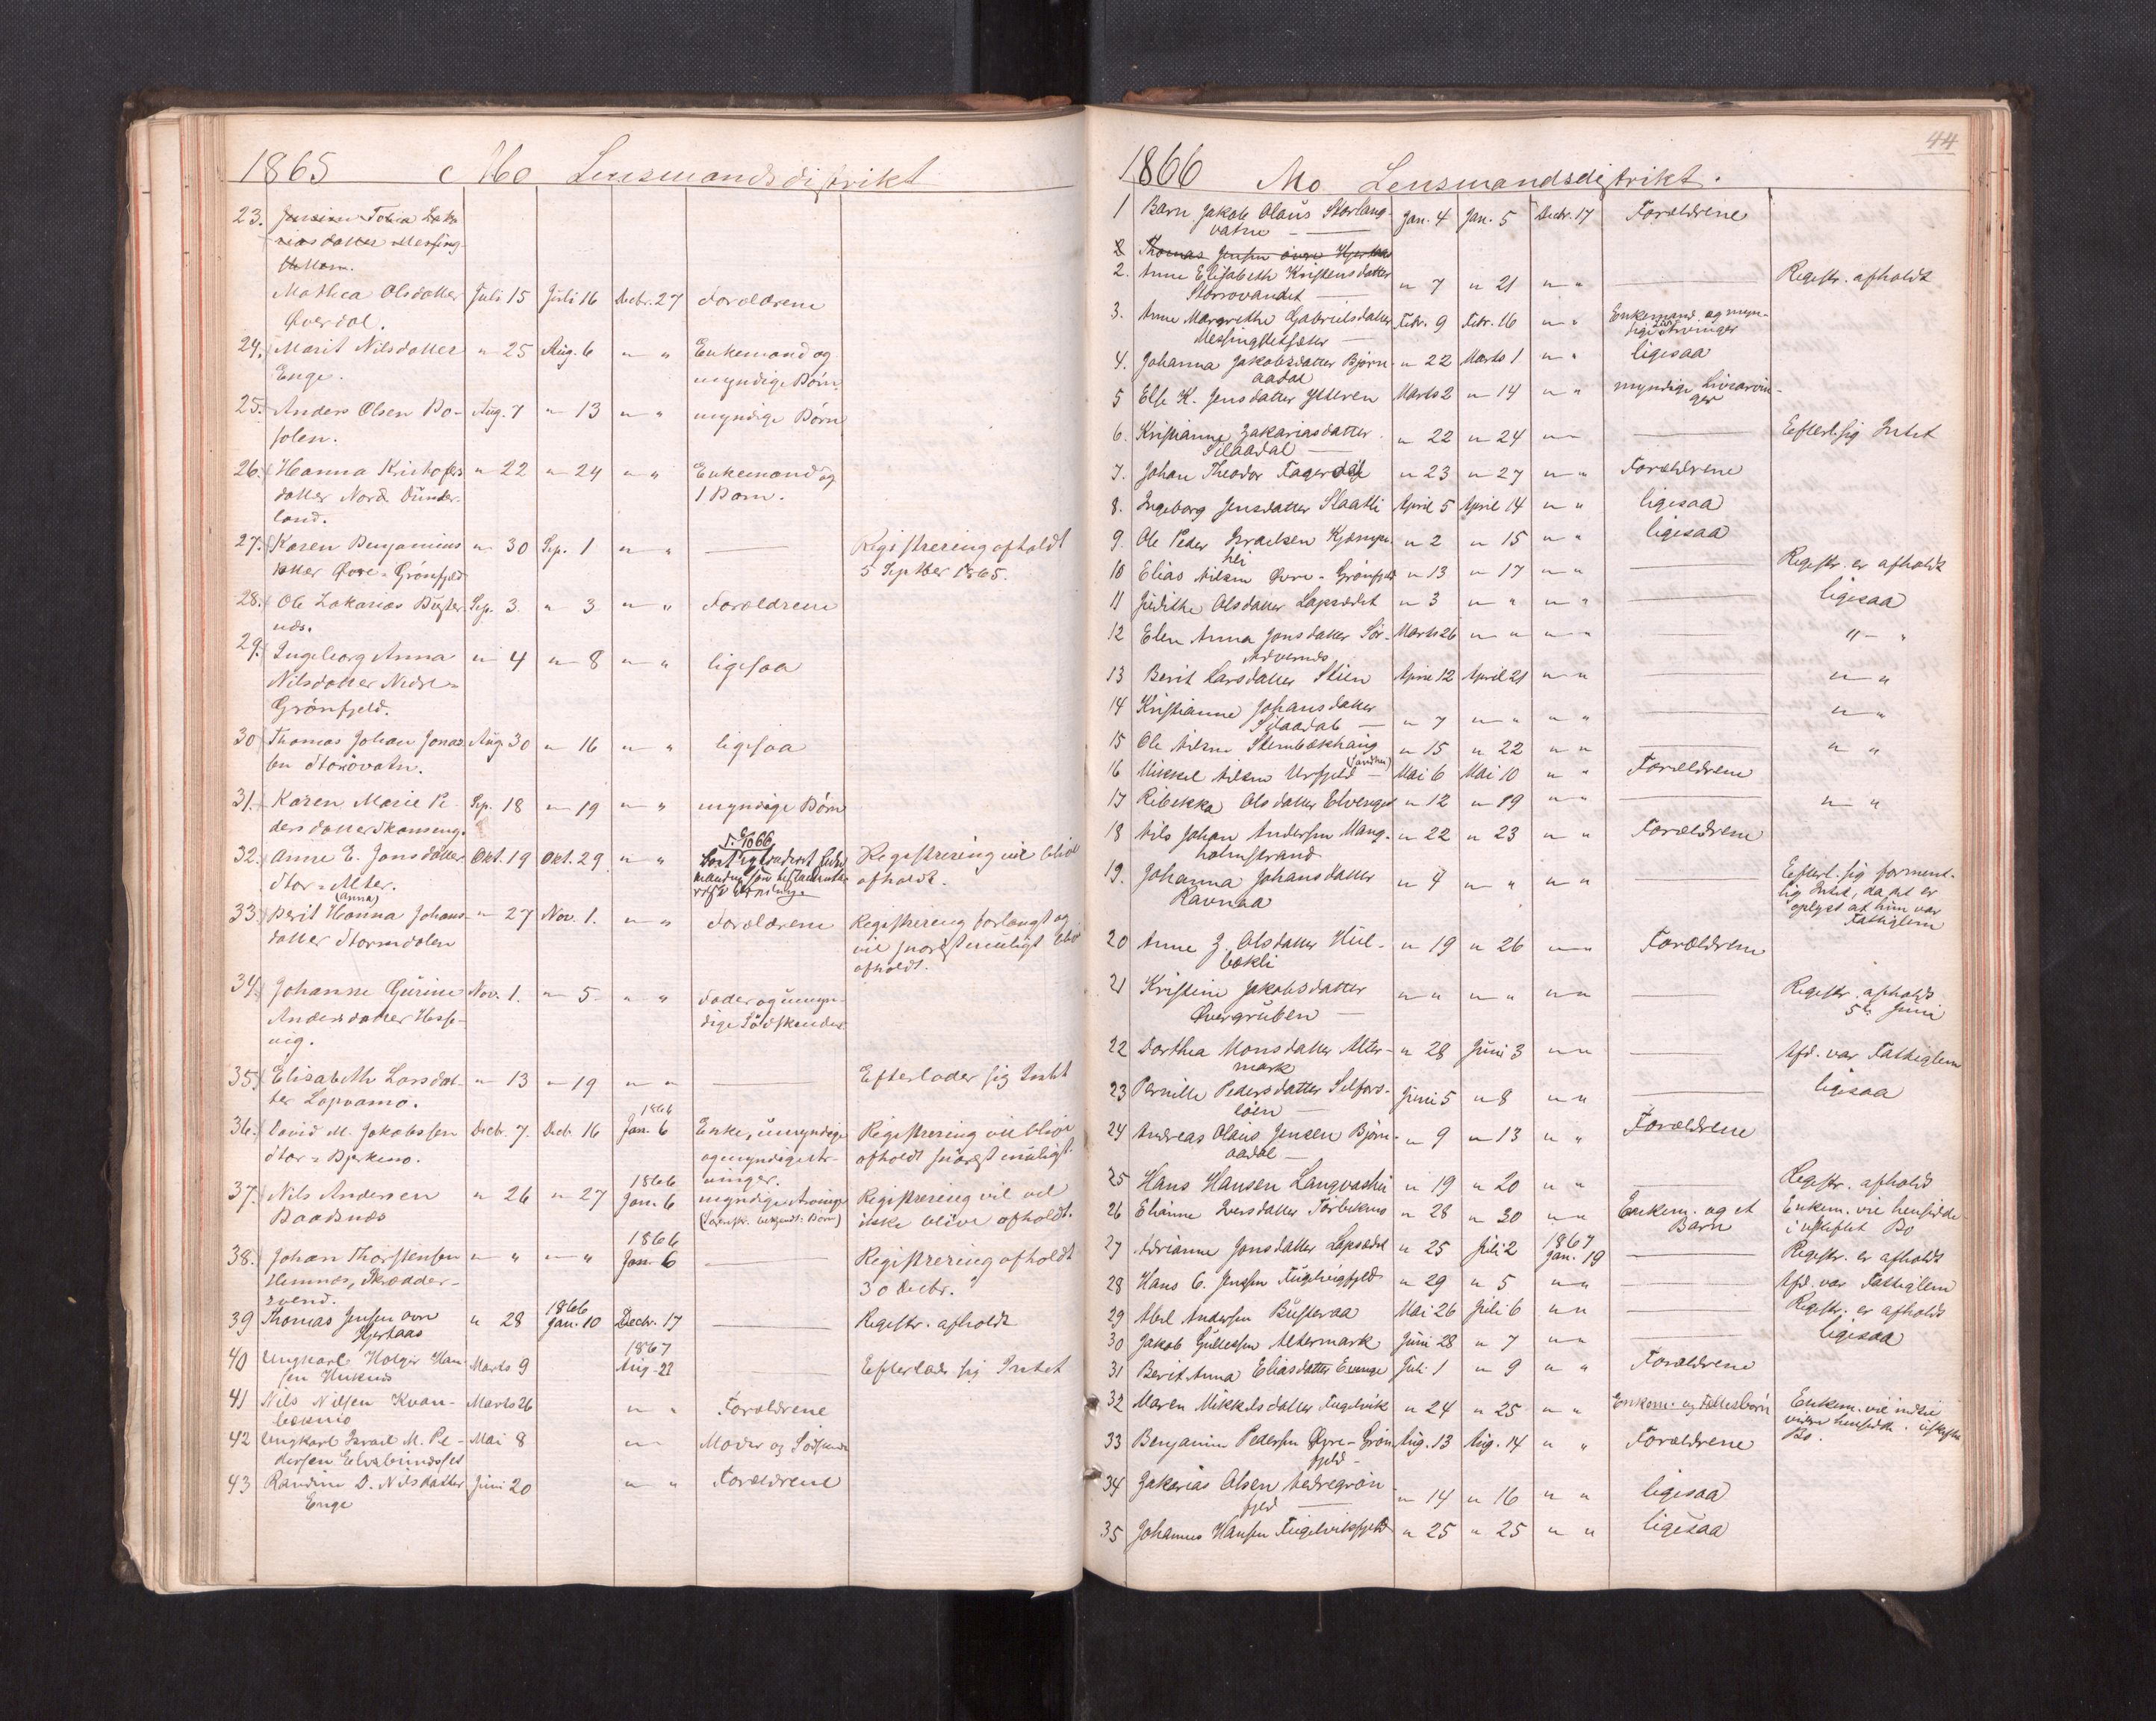 1865 Mo Lensmandsdistrikt
23. Tobia
datter Messing
Mathea Olsdatter Juli 15 Juli 16 Decbr. 27 Forældrene
Øverdal.
24. Marit Nilsdatter " 25 Aug. 6 " " Enkemand og
Enge. myndige Børn
25. Anders Olsen Bo- Aug. 7 " 13 " " myndige Børn
solen.
26. Hanna Kristofers " 22 " 24 " " Enkemand og
datter Nord Dunder- 1 Barn.
land.
27. Karen Benjamins " 30 Sep. 1 " " — Registrering afholdt
datter Øvre-Grønfjeld 5 Septber 1865.
28. Ole Zakarias Sep. 3 " 3 " " Forældrene
næs.
29. Ingeborg Anna " 4 " 8 " " ligesaa
Nilsdatter Nedre-
Grønfjeld.
30 Thomas Johan Jonas Aug. 30 " 16 " " ligesaa
sen Storøvatn.
31. Karen Marie Pe- Sep. 18 " 19 " " myndige Børn
dersdatter
32. Anne E. Jonsdatter Okt. 19 Okt. 29 " " Registrering vil blive
Stor-Alter. afholdt.
(Anna)
33. Berit Hanna Johans- " 27 Nov. 1. " " Forældrene Registrering forlangt og
datter Stormdalen vil snarest muligt blive
afholdt.
34. Johanne Gurine Nov. 1. " 5 " " Fader og umyn-
Andersdatter Hesse- dige Sødskender
vig.
35. Elisabeth Larsdat- " 13 " 19 " " — Efterlader sig Intet
ter
1866
36. David M. Jakobssen Decbr. 7. Decb. 16 Jan. 6 Enke, umyndige Registrering vil blive
Stor-Bjerkmo. og myndige Ar- afholdt snarest muligt.
vinger.
1866
37. Nils Andersen " 26 " 27 Jan. 6 myndige Arvinger Registrering vil vel
Baadsnæs ikke blive afholdt.
1866
38. Johan Thorstensen " " " " Jan. 6 — Registrering afholdt
Hemnæs, Skrædder- 30 Decbr.
svend.
1866
39 Thomas Jensen øvre " 28 Jan. 10 Decbr. 17 — Regstr. afholdt
Hjertaas
1867
40 Ungkarl Holger Han- Marts 9 Aug. 22 — Efterlader sig Intet
sen
41 Nils Nilsen Kvan- Marts 26 " " Forældrene
42 Ungkarl Israel M. Pe- Mai 8 " Moder og Sødskende
dersen
43 Randine D. Nilsdatter Juni 20 " " Forældrene
Enge
44
1866 Mo Lensmandsdistrikt.
1 Barn Jakob Olaus Storlang- Jan. 4 Jan. 5 Decbr. 17 Forældrene
vatne —
2 Thomas Jensen øvre Hjertaas
2. Anne Elisabeth Kristensdatter " 7 " 21 " " — Registr. afholdt
Storrovandet —
3. Anne Margrethe Gabrielsdatter Febr. 9 Febr. 16 " " Enkemand og myn-
Messingsletsæter — dige Arvinger
4. Johanna Jakobsdatter Bjørn- " 22 Marts 1 " " ligesaa
aadal
5 Else K. Jensdatter Ytteren Marts 2 " 14 " " myndige Livsarvin-
ger
6. Kristianne Zakariasdatter " 22 " 24 " " — Efterl. sig Intet
Silaadal —
7. Johan Theodor Fagerdal " 23 " 27 " " Forældrene
8. Ingeborg Jensdatter Slaatli April 5 April 14 " " ligesaa
9. Ole Peder Israelsen " 2 " 15 " " ligesaa
hei
10 Elias Nilsen Øvre-Grønfjeld " 13 " 17 " " — Registr. er afholdt
11 Judithe Olsdatter " 3 " " " " — ligesaa
12 Elen Anna Jonsdatter Sør- Marts 26 " " " " " "
13 Berit Larsdatter Stien April 12 April 21 " " — " "
14 Kristianne Johansdatter " 7 " " " " — " "
Silaadal —
15 Ole Nilsen Stenbækhaug " 15 " 22 " " — " "
16 Mikkel Nilsen Urfjeld — Mai 6 Mai 10 " " Forældrene
17 Rebekka Olsdatter " 12 " 19 " " — " "
18 Nils Johan Andersen Mang- " 22 " 23 " " Forældrene
holmstrand
19. Johanna Johansdatter " 4 " " " " — Efterl. sig forment-
Ravnaa lig Intet, da det er
oplyst at hun var
Fattiglem
20 Anne Z. Olsdatter " 19 " 26 " " Forældrene
21 Kristine Jakobsdatter " " " " " " — Registr. afholdt
Øvergruben — 5te Juni
22 Dorthea Monsdatter Alter- " 28 Juni 3 " " — Afd. var Fattiglem
mark
23 Pernille Pedersdatter Selfors- Juni 5 " 8 " " — ligesaa
løen —
24 Andreas Olaus Jensen Bjørn- " 9 " 13 " " Forældrene
aadal —
25 Hans Hansen " 19 " 20 " " — Registr. afholdt
26 Elianne Iversdatter " 28 " 30 " " Enkem. og et Enkem. vil hensidde
Barn i uskiftet Bo
1867
27 Adrianne Jonsdatter " 25 Juli 2 Jan. 19 — Registr. er afholdt
28 Hans C. Jensen " 29 " 5 " " — Afd. var Fattiglem
29 Abel Andersen Busteraa Mai 26 Juli 6 " " — Registr. er afholdt
30 Jakob Gullessen Altermark Juni 28 " 7 " " — ligesaa
31 Berit Anna Eliasdatter Evenge Juli 1 " 9 " " Forældrene
32 Maren Mikkelsdatter Fugelvik " 24 " 25 " " Enkem. og Fællesbørn Enkem. vil indtil
videre hensidde i uskiftet
Bo.
33 Benjamin Pedersen Øvre-Grøn Aug. 13 Aug. 14 " " Forældrene
fjeld —
34 Zakarias Olsen Nedregrøn " 14 " 16 " " ligesaa
fjeld —
35 Johannes Hansen Fugelvikfjeld " 25 " 25 " " ligesaa